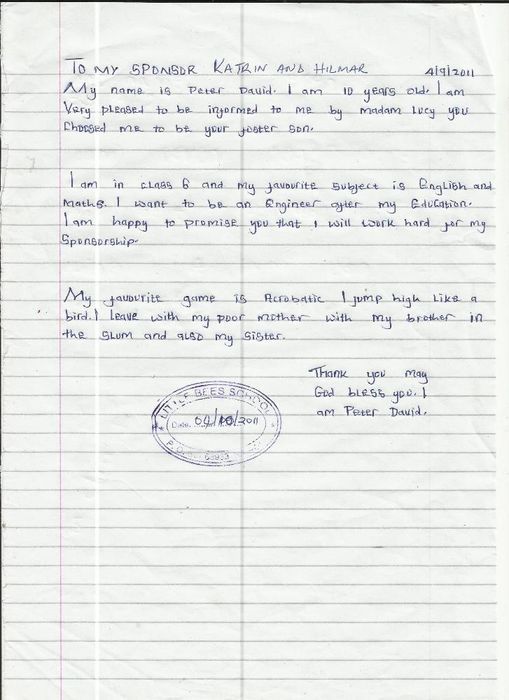 TO MY SPONSOR KATRIN AND HILMAR 4/9/2011
My name is Peter David. I am 10 years old. I am
Very pleased to be informed to me by madam Lucy you
choosed me to be your foster son.
I am in class 6 and my favourite subject is English and
Maths. I want to be an Engineer after my Education.
I am happy to promise you that I will work hard for my
Sponsorship.
My favourite game is Acrobatic I jump high like a
bird. I leave with my poor mother with my brother in
the slum and also my sister.
Thank you may
God bless you. I
am Peter David.
LITTLE BEES SCHOOL
Date 04/10/2011